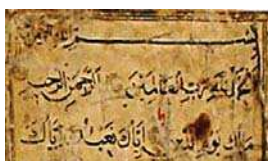 بسم الله الرحمن الرحيم
الحمد لله رب العالمين الرحمن الرحيم
مالك يوم الدين إياك نعبد وإياك